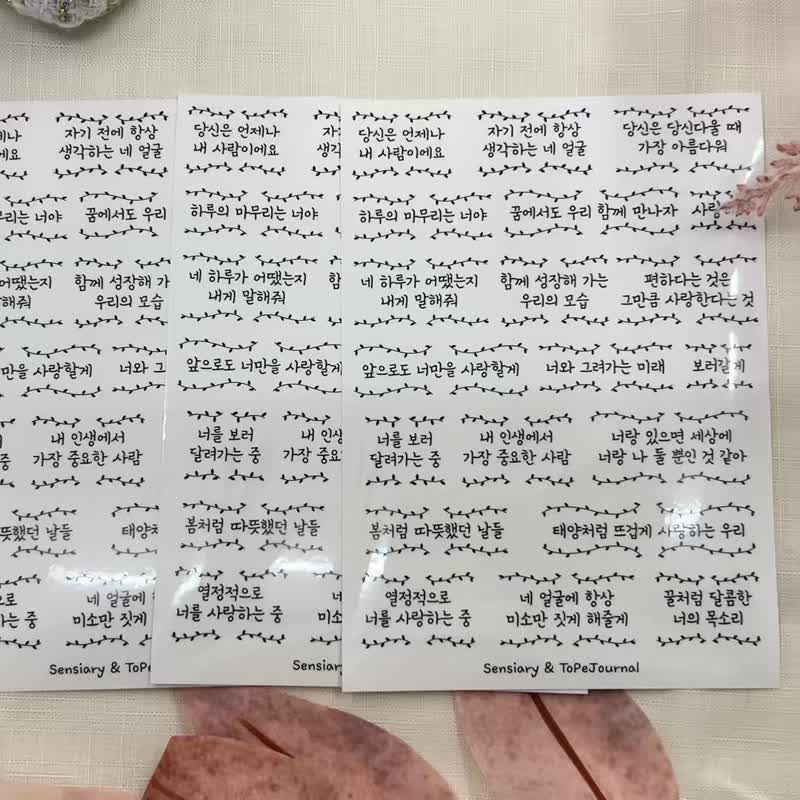 나
에요
자기 전에 항상
생각하는 네 얼굴
리는 너야
꿈에서도 우리
어땠는지
해줘
함께 성장해 가
우리의 모습
만을 사랑할게
너와 그
중
내 인생에서
가장 중요한 사람
뜻했던 날들
태양처
로
는 중
네 얼굴에
미소만 짓게
Sensiary & ToPe
당신은 언제나
내 사람이에요
자
생각
하루의 마무리는 너야
네 하루가 어땠는지
내게 말해줘
함
앞으로도 너만을 사랑할게
너를 보러
달려가는 중
내 인생
가장 중
봄처럼 따뜻했던 날들
열정적으로
너를 사랑하는 중
Sensia
당신은 언제나
내 사람이에요
자기 전에 항상
생각하는 네 얼굴
당신은 당신다울 때
가장 아름다워
하루의 마무리는 너야
꿈에서도 우리 함께 만나자
사랑
네 하루가 어땠는지
내게 말해줘
함께 성장해 가는
우리의 모습
편하다는 것은
그만큼 사랑한다는 것
앞으로도 너만을 사랑할게
너와 그려가는 미래
보러갈게
너를 보러
달려가는 중
내 인생에서
가장 중요한 사람
너랑 있으면 세상에
너랑 나 둘 뿐인 것 같아
봄처럼 따뜻했던 날들
태양처럼 뜨겁게 사랑하는 우리
열정적으로
너를 사랑하는 중
네 얼굴에 항상
미소만 짓게 해줄게
꿀처럼 달콤한
너의 목소리
Sensiary & ToPeJournal